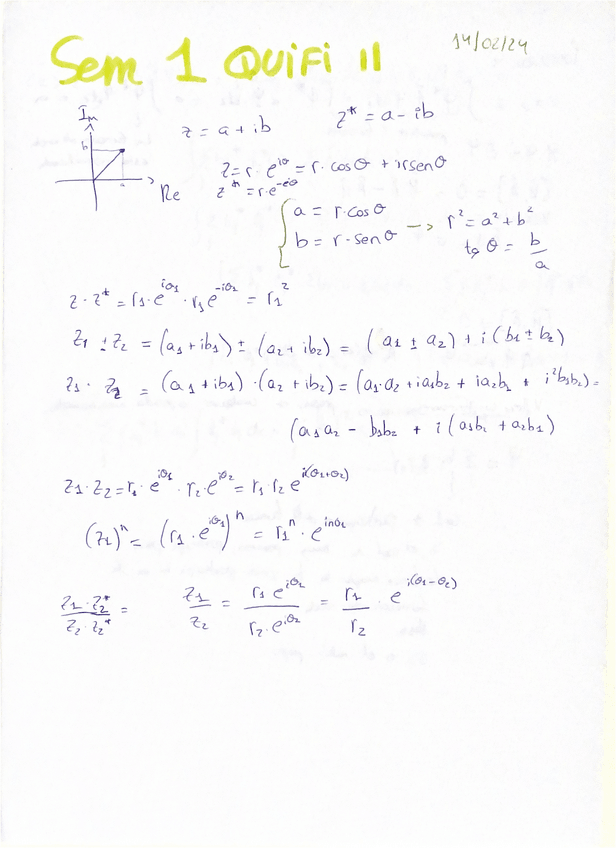 14/02/24
Sem 1 QUIFI II
Im
z = a + ib z* = a - ib
b
a Re
z = r · e^{iθ} = r · cosθ + i r senθ
z* = r · e^{-iθ}
a = r · cosθ
b = r · senθ → r² = a² + b²
tg θ = b/a
z · z* = r₁ · e^{iθ₁} · r₁ e^{-iθ₁} = r₁²
z₁ ± z₂ = (a₁ + ib₁) ± (a₂ + ib₂) = (a₁ ± a₂) + i (b₁ ± b₂)
z₁ · z₂ = (a₁ + ib₁) · (a₂ + ib₂) = (a₁·a₂ + ia₁b₂ + ia₂b₁ + i²b₁b₂) =
(a₁a₂ - b₁b₂ + i (a₁b₂ + a₂b₁)
z₁ · z₂ = r₁ · e^{iθ₁} · r₂ · e^{iθ₂} = r₁ · r₂ e^{i(θ₁+θ₂)}
(z₁)ⁿ = (r₁ · e^{iθ₁})ⁿ = r₁ⁿ · e^{inθ₁}
z₁ · z₂* / z₂ · z₂* = z₁/z₂ = r₁ e^{iθ₁} / r₂ · e^{iθ₂} = r₁/r₂ · e^{i(θ₁-θ₂)}